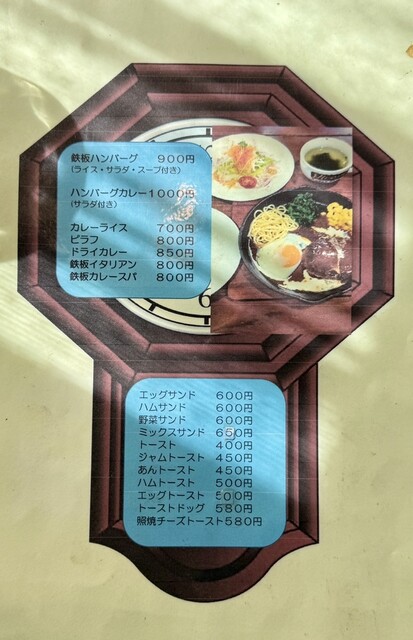 鉄板ハンバーグ 900円
(ライス・サラダ・スープ付き)
ハンバーグカレー1000円
(サラダ付き)
カレーライス 700円
ピラフ 800円
ドライカレー 850円
鉄板イタリアン 800円
鉄板カレースパ 800円
6
エッグサンド 600円
ハムサンド 600円
野菜サンド 600円
ミックスサンド 650円
トースト 400円
ジャムトースト 450円
あんトースト 450円
ハムトースト 500円
エッグトースト 500円
トーストドッグ 580円
照焼チーズトースト580円